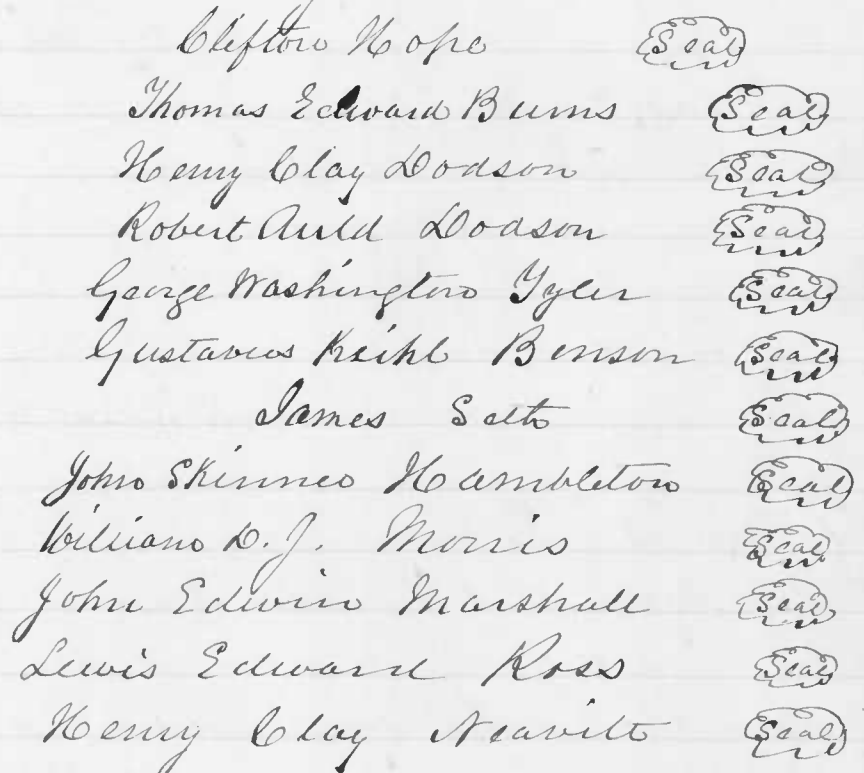 Clifton Hope Seal
Thomas Edward Burns Seal
Henry Clay Dodson Seal
Robert Auld Dodson Seal
George Washington Tyler Seal
Gustavus Keihl Benson Seal
James Seth Seal
John Skinner Hambleton Seal
William D. J. Morris Seal
John Edwin Marshall Seal
Lewis Edward Ross Seal
Henry Clay Neavitt Seal